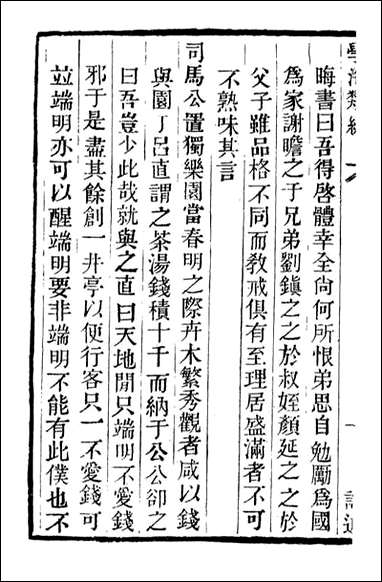 晦書曰吾得啓體幸全尚何所恨弟思自勉厲爲國
爲家謝瞻之于兄弟劉鎭之之於叔姪顏延之之於
父子雖品格不同而敎戒俱有至理居盛滿者不可
不熟味其言
司馬公置獨樂園當春明之際卉木繁秀觀者咸以錢
與園丁呂直謂之茶湯錢積十千而納于公公卻之
曰吾豈少此哉就與之直曰天地間只端明不愛錢
邪于是盡其餘創一井亭以便行客只一不愛錢可
並端明亦可以醒端明要非端明不能有此僕也不